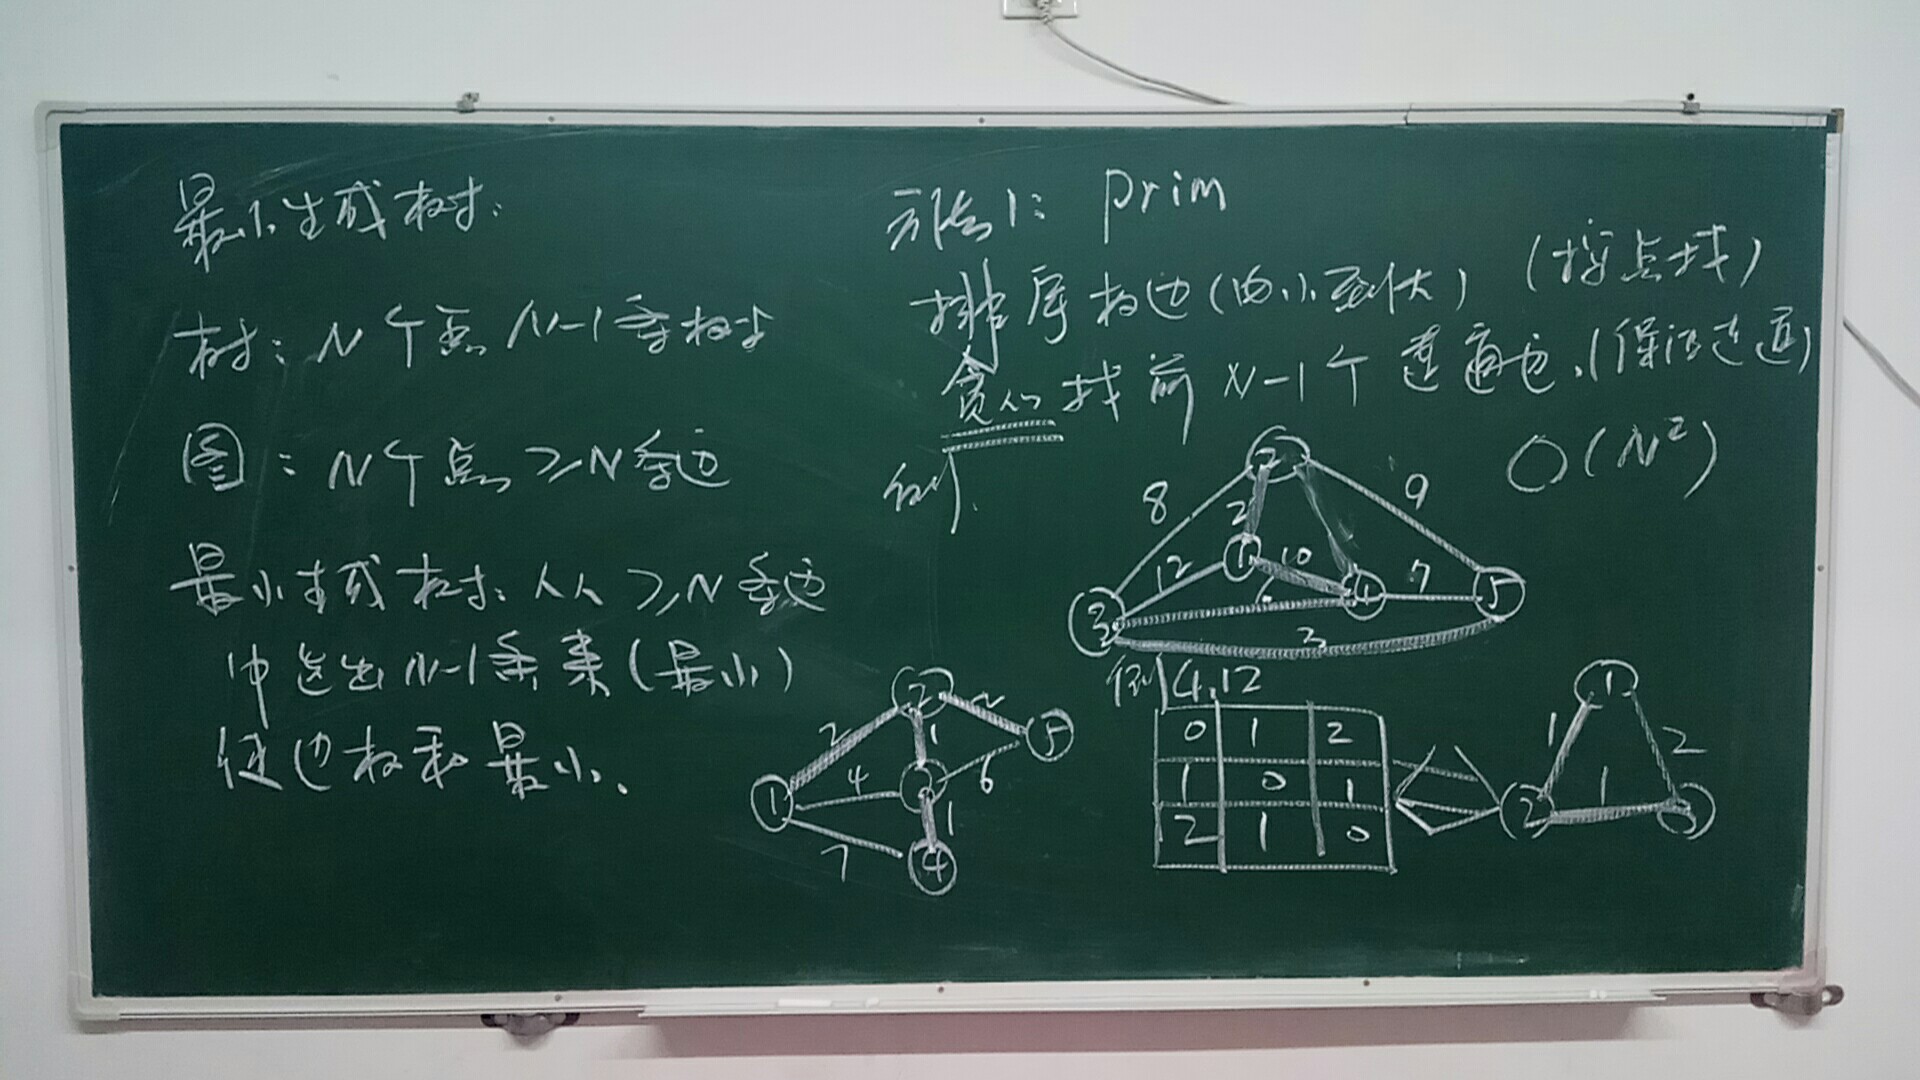 最小生成树:
树: N个点 N-1条树边
图: N个点 ≥N条边
最小生成树: 从 ≥N条边
中选出 N-1条来(最小)
使边权和最小.
2 2 2
5
1 6
1 4 3
1
7 4
方法1: prim
排序权边(由小到大) (按点找)
贪心找前 N-1个连通边.(保证连通)
O(N²)
例.
2
8 9
2
1 10
12 7
3 4 5
3
例4.12
0 1 2
1 0 1
2 1 0
1
1 2
2 1 3